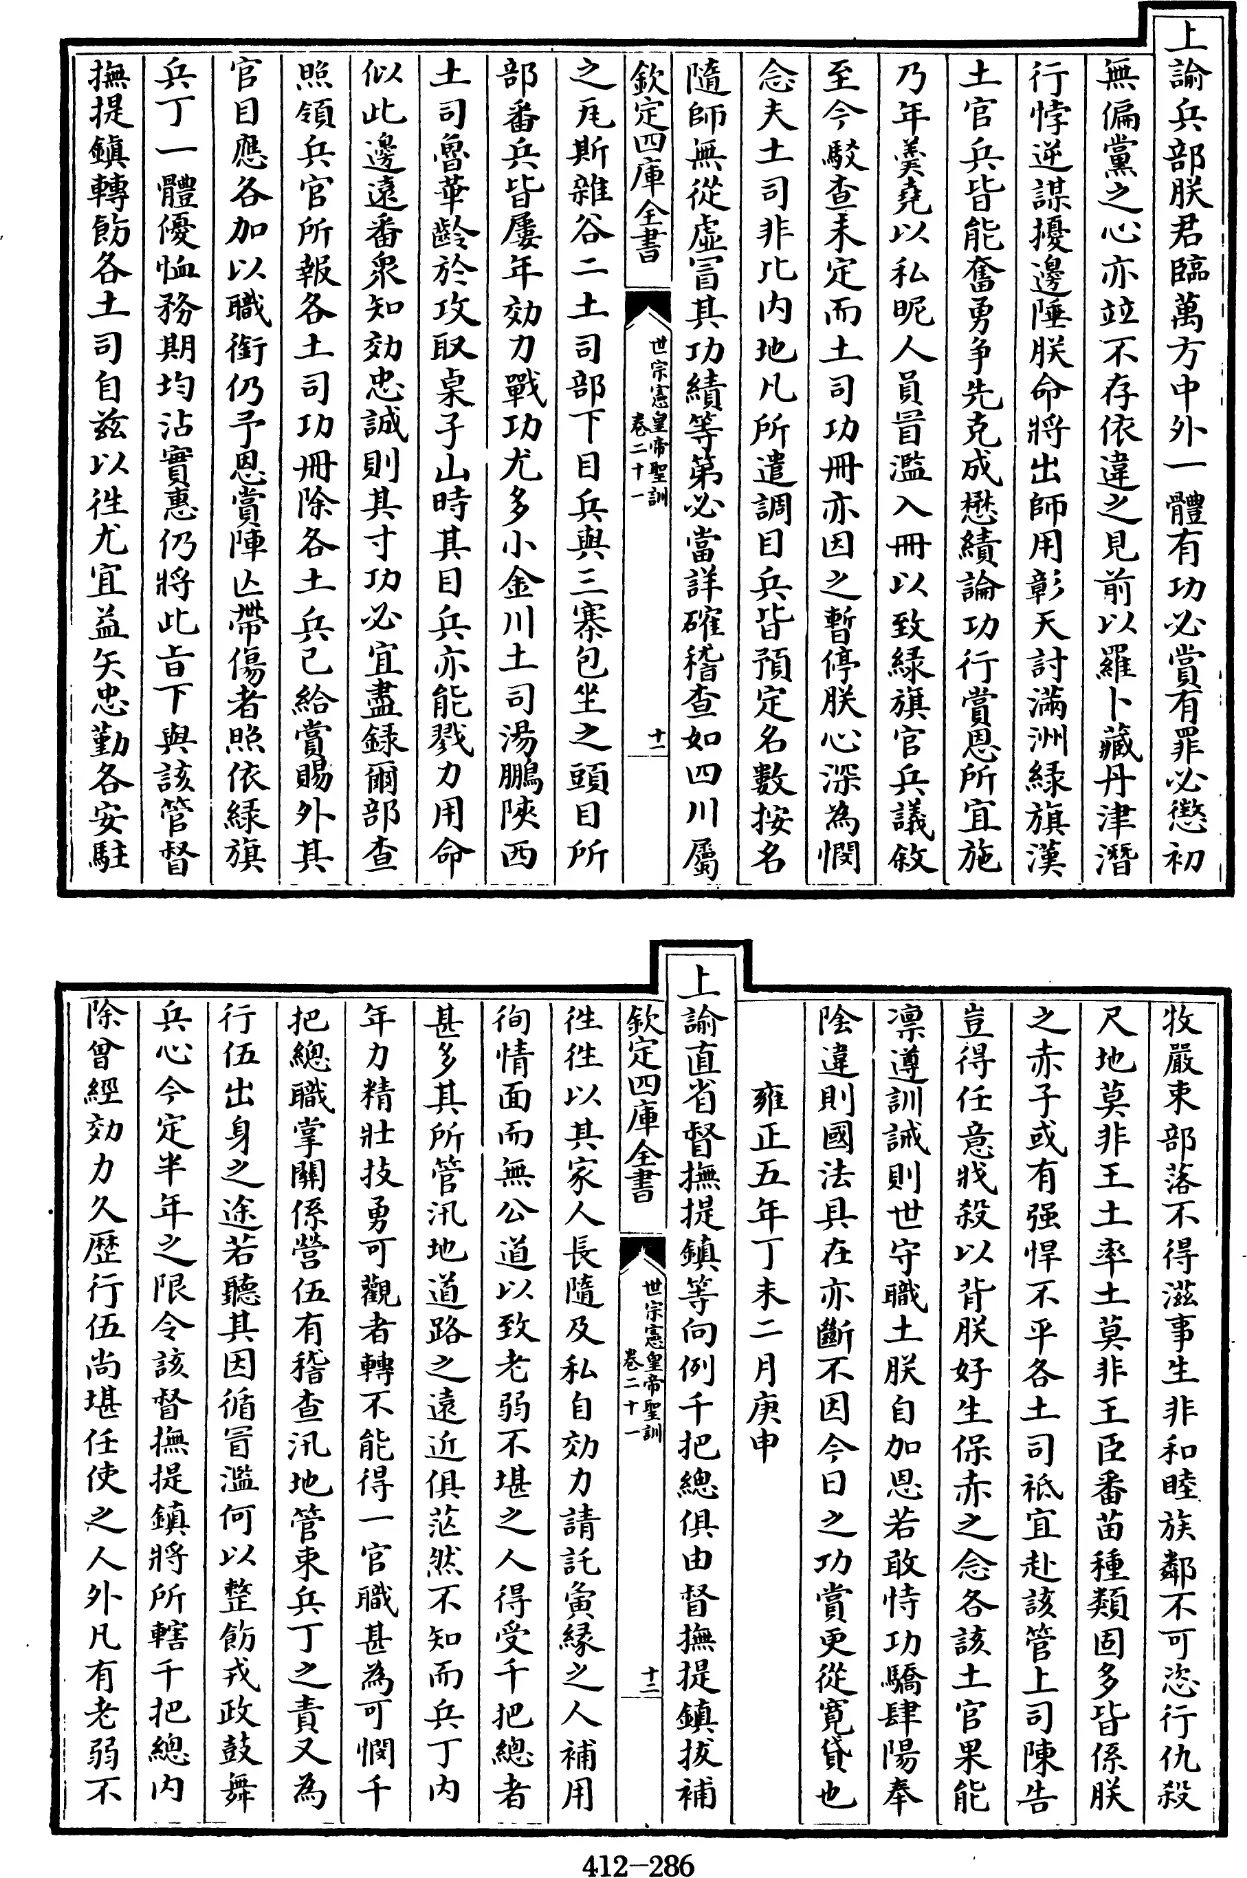 上諭兵部朕君臨萬方中外一體有功必賞有罪必懲初
無偏黨之心亦並不存依違之見前以羅卜藏丹津潛
行悖逆謀擾邊陲朕命將出師用彰天討滿洲綠旗漢
土官兵皆能奮勇爭先克成懋績論功行賞恩所宜施
乃年羹堯以私昵人員冒濫入冊以致綠旗官兵議敘
至今駁查未定而土司功冊亦因之暫停朕心深為憫
念夫土司非比內地凡所遣調目兵皆預定名數按名
隨師無從虛冒其功績等第必當詳確稽查如四川屬
欽定四庫全書
世宗憲皇帝聖訓
卷二十一
十一
之瓦斯雜谷二土司部下目兵與三寨包坐之頭目所
部番兵皆屢年効力戰功尤多小金川土司湯鵬陜西
土司魯華齡於攻取桌子山時其目兵亦能戮力用命
似此邊遠番衆知効忠誠則其寸功必宜盡錄爾部查
照領兵官所報各土司功冊除各土兵已給賞賜外其
官目應各加以職銜仍予恩賞陣亡帶傷者照依綠旗
兵丁一體優恤務期均沾實惠仍將此旨下與該管督
撫提鎮轉飭各土司自茲以往尤宜益矢忠勤各安駐
牧嚴束部落不得滋事生非和睦族鄰不可恣行仇殺
尺地莫非王土率土莫非王臣番苗種類固多皆係朕
之赤子或有强悍不平各土司祗宜赴該管上司陳告
豈得任意戕殺以背朕好生保赤之念各該土官果能
凛遵訓誡則世守職土朕自加恩若敢恃功驕肆陽奉
陰違則國法具在亦斷不因今日之功賞更從寬貸也
雍正五年丁未二月庚申
上諭直省督撫提鎮等向例千把總俱由督撫提鎮拔補
欽定四庫全書
世宗憲皇帝聖訓
卷二十一
十二
徃徃以其家人長隨及私自効力請託夤緣之人補用
徇情面而無公道以致老弱不堪之人得受千把總者
甚多其所管汛地道路之遠近俱茫然不知而兵丁內
年力精壯技勇可觀者轉不能得一官職甚為可憫千
把總職掌關係營伍有稽查汛地管束兵丁之責又為
行伍出身之途若聽其因循冒濫何以整飭戎政鼓舞
兵心今定半年之限令該督撫提鎮將所轄千把總內
除曾經効力久歷行伍尚堪任使之人外凡有老弱不
412-286